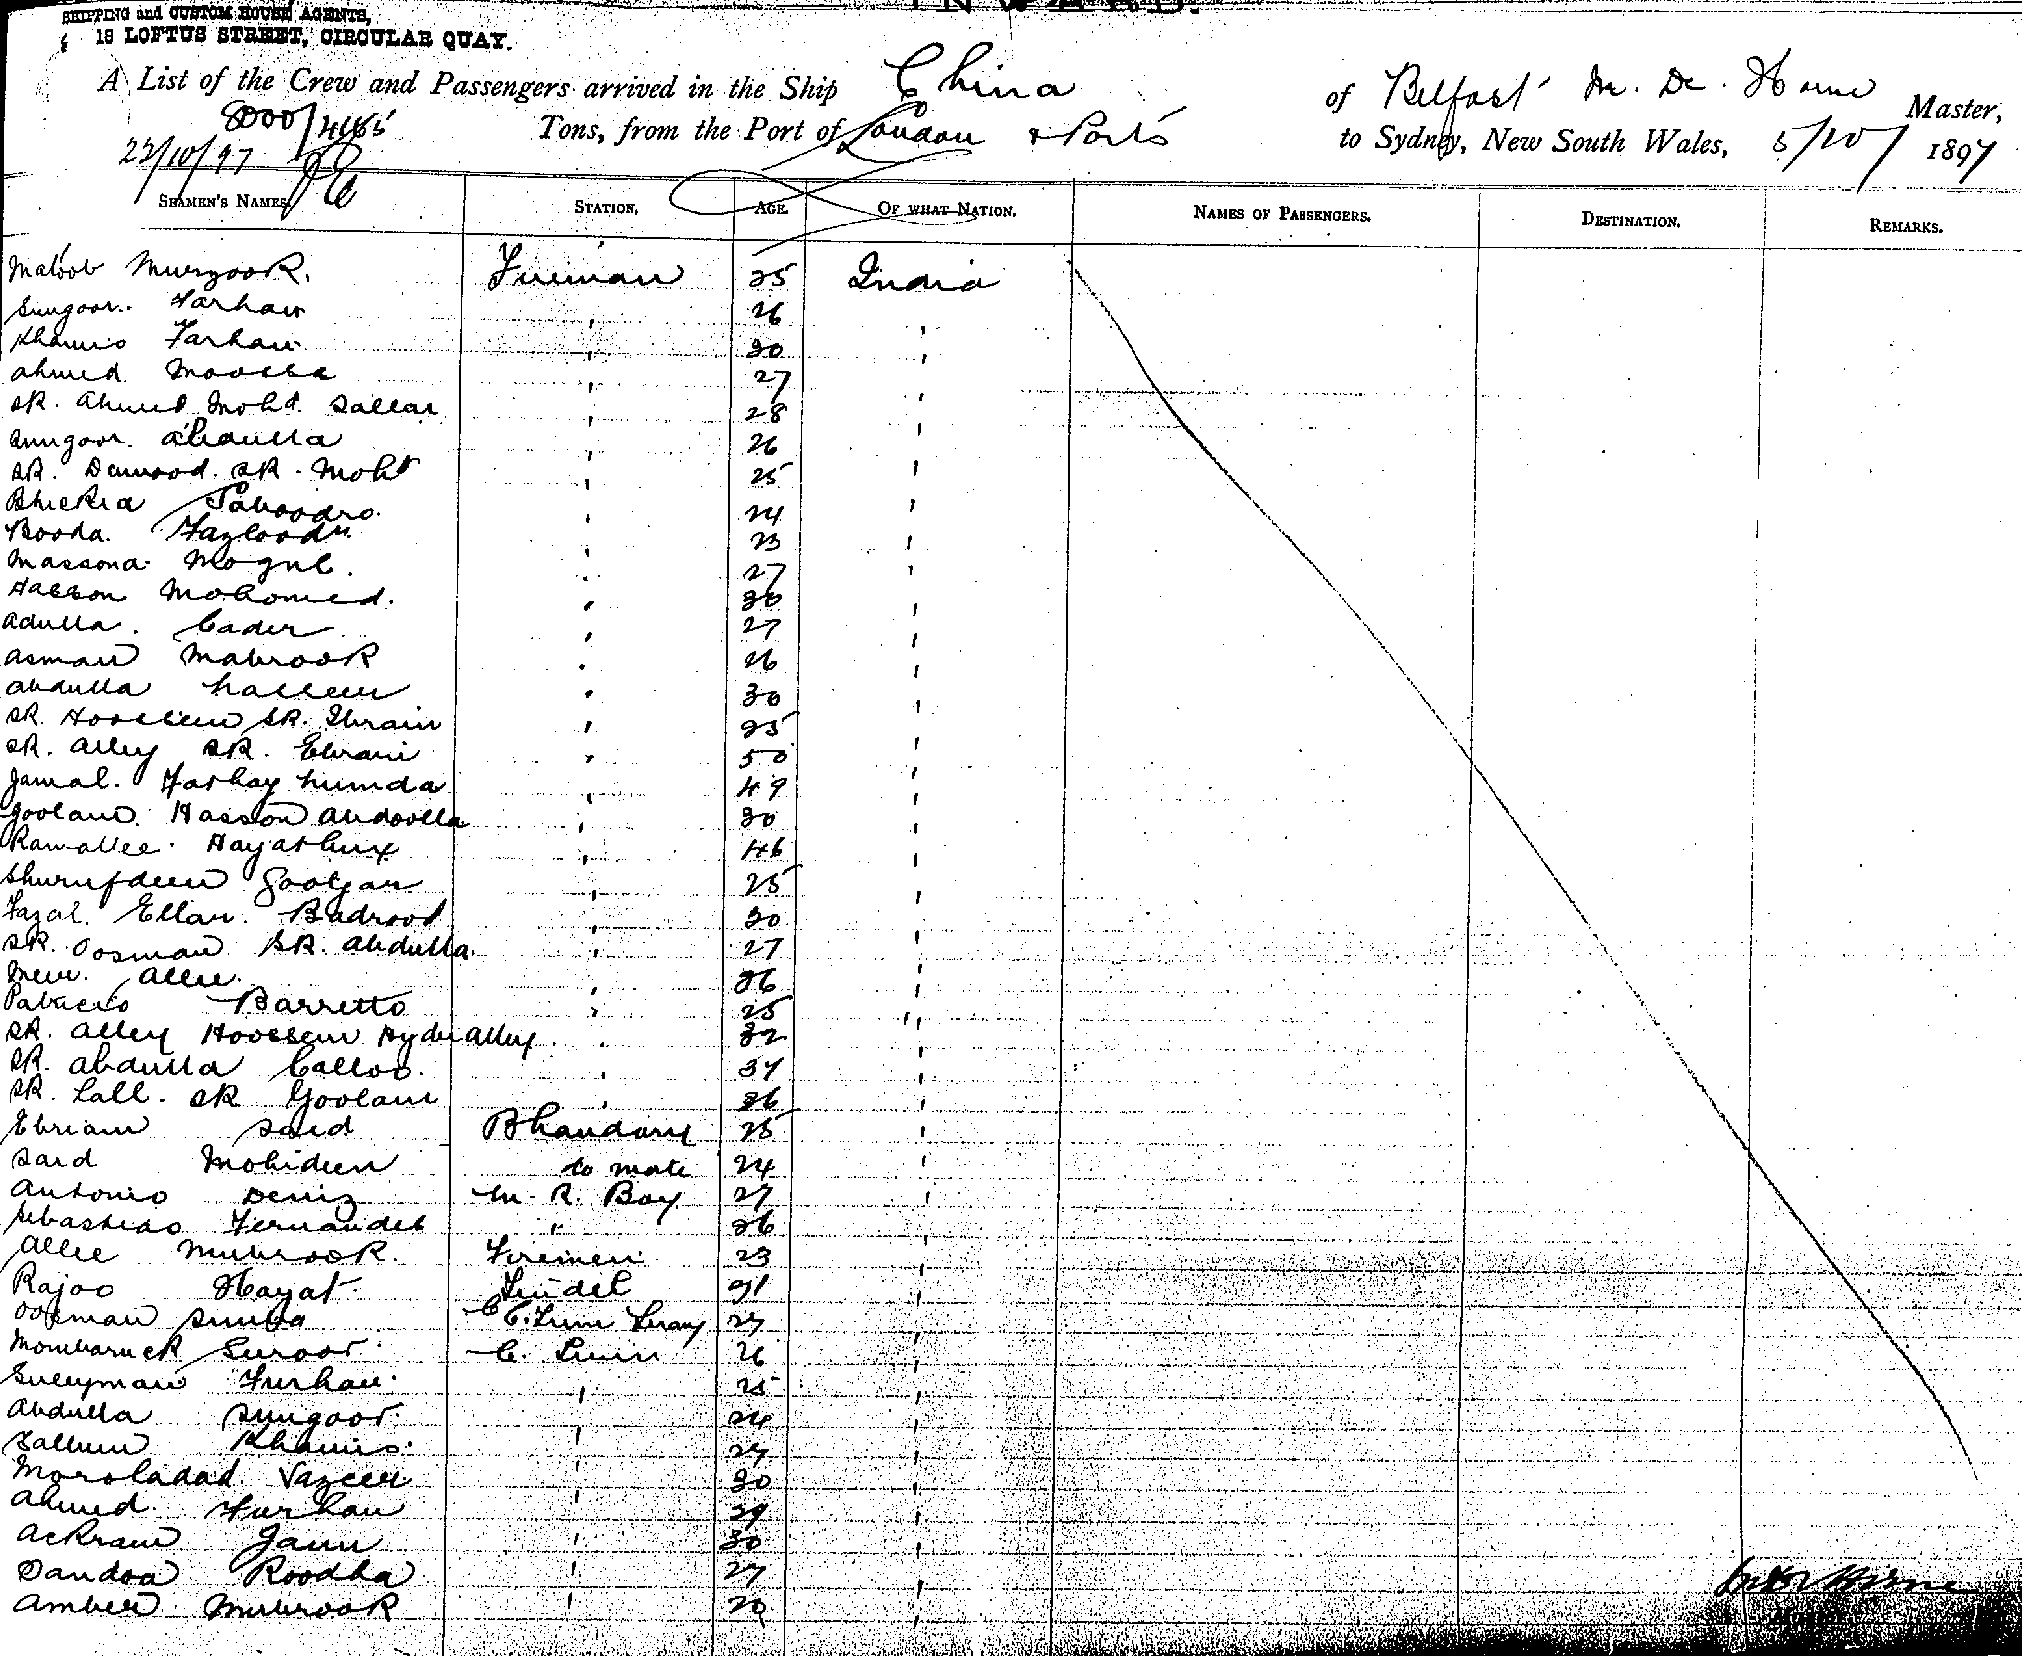 INWARD.
SHIPPING and CUSTOM HOUSE AGENTS,
18 LOFTUS STREET, CIRCULAR QUAY.
A List of the Crew and Passengers arrived in the Ship China of Belfast M. De. Horne Master,
8000/4165 Tons, from the Port of London & Ports to Sydney, New South Wales, 5/10/1897
23/10/97
SEAMEN'S NAMES. STATION. AGE. OF WHAT NATION. NAMES OF PASSENGERS. DESTINATION. REMARKS.
Maboob Murzook. Fireman 25 India
Sungoor. Farhan " 26 "
Khamis Farhan " 30 "
Ahmed Moosa " 27 "
SK. Ahmed Mohd. Sallar " 28 "
Sungoor. Abdulla " 26 "
SK. Dawood. SK. Mohd " 25 "
Bhickia " 24 "
Booda. Fazloodn " 23 "
Massona Mogul. " 27 "
Hasson Mohomed. " 30 "
Adulla. Cader " 27 "
Asman Mabrook " 26 "
Abdulla " 30 "
SK. Hoosein SK. Ebraim " 25 "
SK. Alley SK. Ebraim " 50 "
Jamal. " 49 "
Goolam. Hasson Abdoolla " 30 "
Ramallee. Hayatbux " 46 "
Shurufdeen " 25 "
Fazal. Ellan. Badrood " 30 "
SK. Oosman SK. Abdulla. " 27 "
Meer. Allee. " 36 "
Barretto " 25 "
SK. Alley Hoosein Hyder Alley " 32 "
SK. Abdulla Calloo. " 34 "
SK. Lall. SK Goolam " 36 "
Ebriam Said Bhandary 25 "
Said Mohideen to mate 24 "
Antonio Deniz M. R. Boy 27 "
Sebastiao Fernandes " 36 "
Allee Mubrook. Firemen 23 "
Rajoo Hayat Tindel "
Oosman Sumba 27 "
Mombaruck Suroor C. 26 "
Suleyman Furhan " 25 "
Abdulla Sungoor " 24 "
Sallum Khamis. " 27 "
Moroladad Vazeer " 30 "
Ahmed Furhan " 29 "
Ackram Jann " 30 "
Dandoa Roodha " 27 "
Amber Mubrook " 20 "